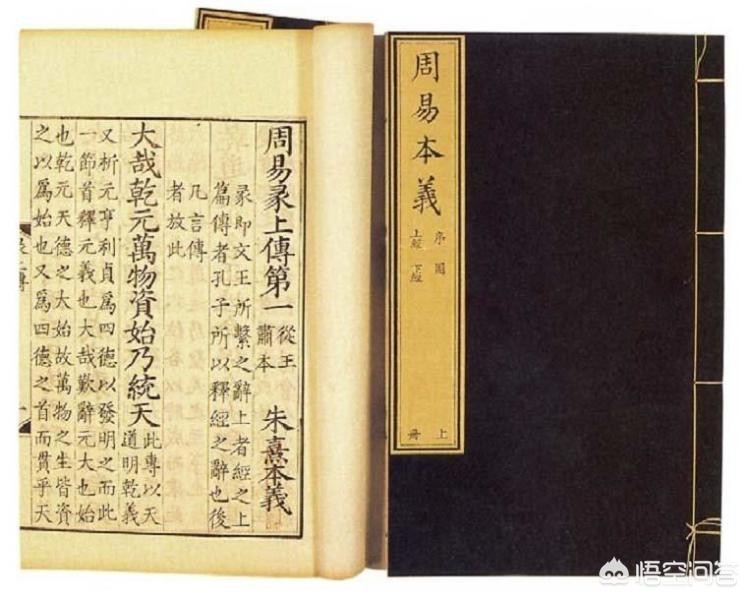 周易本義
序圖
上經 下經
上册
周易彖上傳第一
從王
肅本
朱熹本義
彖即文王所繫之辭上者經之上
篇傳者孔子所以釋經之辭也後
凡言傳
者放此
大哉乾元萬物資始乃統天
此專以天
道明乾義
又析元亨利貞爲四德以發明之而此
一節首釋元義也大哉歎辭元大也始
也乾元天德之大始故萬物之生皆資
之以爲始也又爲四德之首而貫乎天
悟空问答